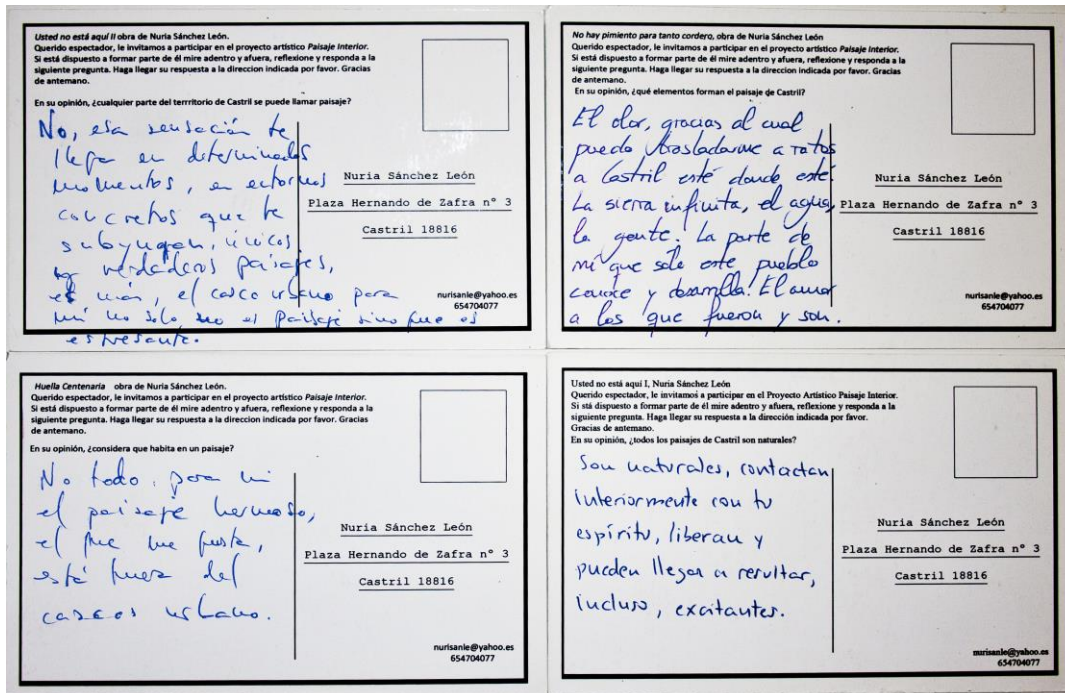 Usted no está aquí II obra de Nuria Sánchez León.
Querido espectador, le invitamos a participar en el proyecto artístico Paisaje Interior.
Si está dispuesto a formar parte de él mire adentro y afuera, reflexione y responda a la
siguiente pregunta. Haga llegar su respuesta a la direccion indicada por favor. Gracias
de antemano.
En su opinión, ¿cualquier parte del terrritorio de Castril se puede llamar paisaje?
No, esa sensación te
llega en determinados
momentos, en entornos
concretos que te
subyugan, únicos
verdaderos paisajes,
es más, el casco urbano para
mi no solo no es paisaje sino que es
estresante.
Nuria Sánchez León
Plaza Hernando de Zafra nº 3
Castril 18816
nurisanle@yahoo.es
654704077
No hay pimiento para tanto cordero, obra de Nuria Sánchez León
Querido espectador, le invitamos a participar en el proyecto artístico Paisaje Interior.
Si está dispuesto a formar parte de él mire adentro y afuera, reflexione y responda a la
siguiente pregunta. Haga llegar su respuesta a la direccion indicada por favor. Gracias
de antemano.
En su opinión, ¿qué elementos forman el paisaje de Castril?
El olor, gracias al cual
puedo trasladarme a ratos
a Castril esté donde esté.
La sierra infinita, el agua,
la gente. La parte de
mí que solo este pueblo
conoce y desarrolla. El amor
a los que fueron y son.
Nuria Sánchez León
Plaza Hernando de Zafra nº 3
Castril 18816
nurisanle@yahoo.es
654704077
Huella Centenaria obra de Nuria Sánchez León.
Querido espectador, le invitamos a participar en el proyecto artístico Paisaje Interior.
Si está dispuesto a formar parte de él mire adentro y afuera, reflexione y responda a la
siguiente pregunta. Haga llegar su respuesta a la direccion indicada por favor. Gracias
de antemano.
En su opinión, ¿considera que habita en un paisaje?
No todo, para mi
el paisaje hermoso,
el que me gusta,
está fuera del
casco urbano.
Nuria Sánchez León
Plaza Hernando de Zafra nº 3
Castril 18816
nurisanle@yahoo.es
654704077
Usted no está aquí I, Nuria Sánchez León
Querido espectador, le invitamos a participar en el Proyecto Artístico Paisaje Interior.
Si stá dispuesto a formar parte de él mire adentro y afuera, reflexione y responda a la
siguiente pregunta. Haga llegar su respuesta a la dirección indicada por favor.
Gracias de antemano.
En su opinión, ¿todos los paisajes de Castril son naturales?
Son naturales, contactan
interiormente con tu
espíritu, liberan y
pueden llegar a resultar,
incluso, excitantes.
Nuria Sánchez León
Plaza Hernando de Zafra nº 3
Castril 18816
nurisanle@yahoo.es
654704077